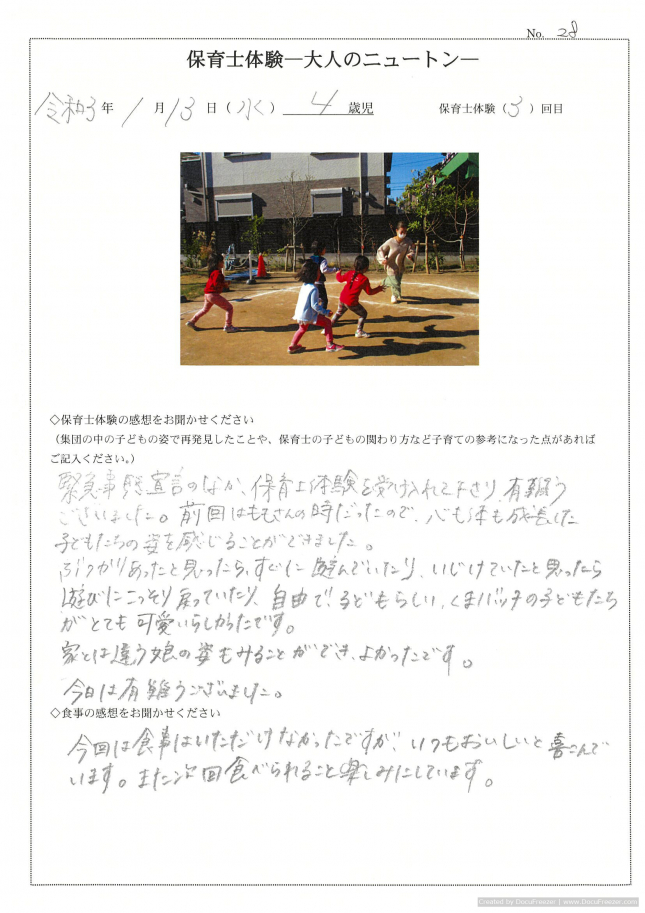 No. 28
保育士体験―大人のニュートン―
令和3年 1月13日（水） 4歳児 保育士体験（3）回目
◇保育士体験の感想をお聞かせください
（集団の中の子どもの姿で再発見したことや、保育士の子どもの関わり方など子育ての参考になった点があれば
ご記入ください。）
緊急事態宣言のなか、保育士体験を受け入れて下さり、有難う
ございました。前回はももさんの時だったので、心も体も成長した
子どもたちの姿を感じることができました。
ぶつかりあったと思ったら、すぐに遊んでいたり、いじけていたと思ったら
遊びにこっそり戻っていたり、自由で、子どもらしい、くまバッチの子どもたち
がとても可愛いらしかったです。
家とは違う娘の姿もみることができ、よかったです。
今日は有難うございました。
◇食事の感想をお聞かせください
今回は食事はいただけなかったですが、いつもおいしいと喜んで
います。また次回食べられること楽しみにしています。
Created by DocuFreezer | www.DocuFreezer.com